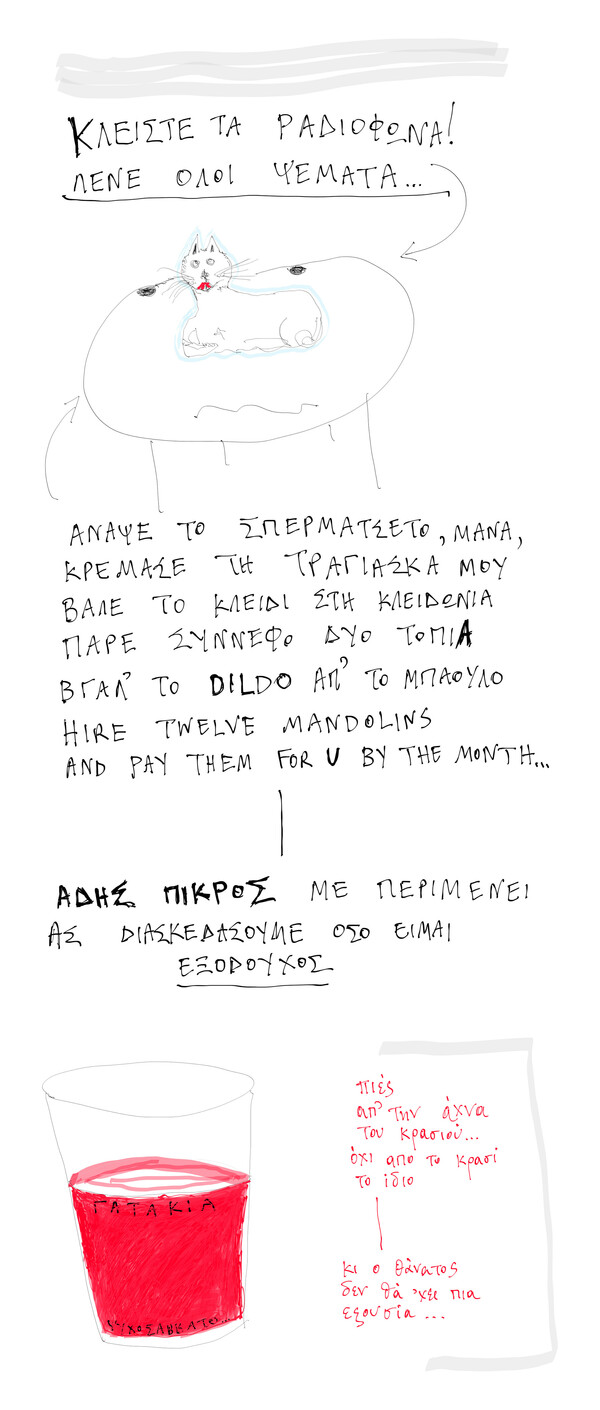 ΚΛΕΙΣΤΕ ΤΑ ΡΑΔΙΟΦΩΝΑ!
ΛΕΝΕ ΟΛΟΙ ΨΕΜΑΤΑ...
ΑΝΑΨΕ ΤΟ ΣΠΕΡΜΑΤΣΕΤΟ, ΜΑΝΑ,
ΚΡΕΜΑΣΕ ΤΗ ΤΡΑΓΙΑΣΚΑ ΜΟΥ
ΒΑΛΕ ΤΟ ΚΛΕΙΔΙ ΣΤΗ ΚΛΕΙΔΩΝΙΑ
ΠΑΡΕ ΣΥΝΝΕΦΟ ΔΥΟ ΤΟΠΙΑ
ΒΓΑΛ' ΤΟ DILDO ΑΠ' ΤΟ ΜΠΑΟΥΛΟ
HIRE TWELVE MANDOLINS
AND PAY THEM FOR U BY THE MONTH...
ΑΔΗΣ ΠΙΚΡΟΣ ΜΕ ΠΕΡΙΜΕΝΕΙ
ΑΣ ΔΙΑΣΚΕΔΑΣΟΥΜΕ ΟΣΟ ΕΙΜΑΙ
ΕΞΟΔΟΥΧΟΣ
ΓΑΤΑΚΙΑ
ΨΥΧΟΣΑΒΒΑΤΟ...
πιès
απ' την άχνα
του κρασιού...
όχι απο το κρασί
το ίδιο
κι ο θάνατος
δεν θά 'χει πια
εξουσία ...